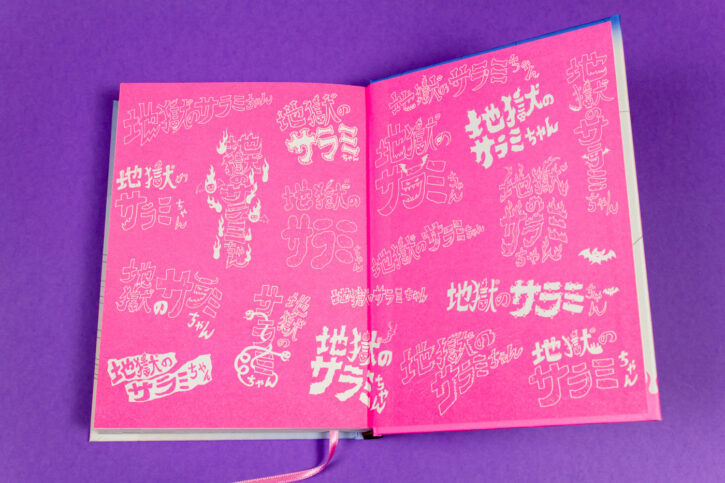 地獄のサラミちゃん
地獄の
サラミちゃん
地獄のサラミちゃん
地獄の
サラミちゃん
地獄の
サラミちゃん
地獄のサラミちゃん
地獄の
サラミちゃん
地獄の
サラミちゃん
地獄のサラミちゃん
地獄の
サラミちゃん
地獄のサラミちゃん
地獄の
サラミちゃん
地獄の
サラミちゃん
地獄のサラミちゃん
地獄の
サラミちゃん
地獄のサラミちゃん
地獄のサラミちゃん
地獄の
サラミちゃん
地獄の
サラミちゃん